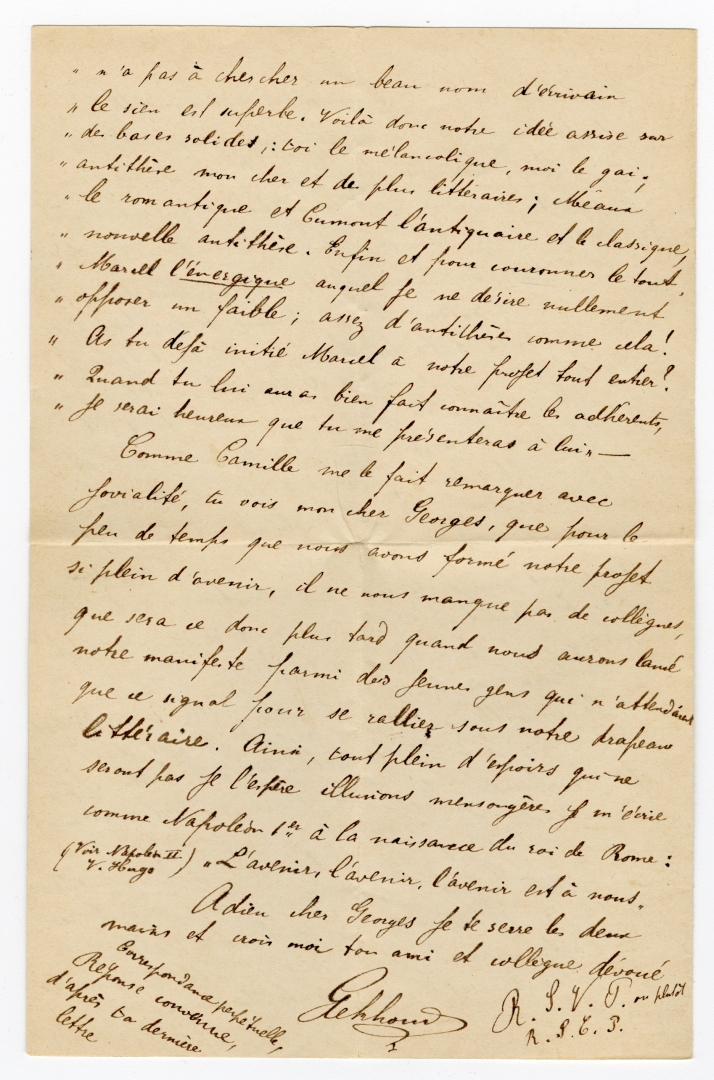 " n'a pas à chercher un beau nom d'écrivain
" le sien est superbe. Voilà donc notre idée assise sur
" des bases solides,: toi le mélancolique, moi le gai;
" antithèse mon cher et des plus littéraires; Méaux
" le romantique et Cumont l'antiquaire et le classique,
" nouvelle antithèse. Enfin et pour couronner le tout,
" Marcel l'énergique auquel je ne désire nullement
" opposer un faible; assez d'antithèses comme cela!
" As tu déjà initié Marcel à notre projet tout entier?
" Quand tu lui auras bien fait connaître les adhérents,
" je serai heureux que tu me présenteras à lui" —
Comme Camille me le fait remarquer avec
jovialité, tu vois mon cher Georges, que pour le
peu de temps que nous avons formé notre projet
si plein d'avenir, il ne nous manque pas de collègues,
que sera ce donc plus tard quand nous aurons lancé
notre manifeste parmi des jeunes gens qui n'attendaient
que ce signal pour se rallier sous notre drapeau
littéraire. Ainsi, tout plein d'espoirs qui ne
seront pas je l'espère illusions mensongères je m'écrie
comme Napoléon 1er à la naissance du roi de Rome:
(Voir Napoléon II
V. Hugo) "L'avenir, l'avenir, l'avenir est à nous"
Adieu cher Georges je te serre les deux
mains et crois moi ton ami et collègue dévoué
Gekhoud
R. S. V. P. ou plutôt
R. S. T. P.
Correspondance perpétuelle,
Réponse convenue,
d'après ta dernière
lettre